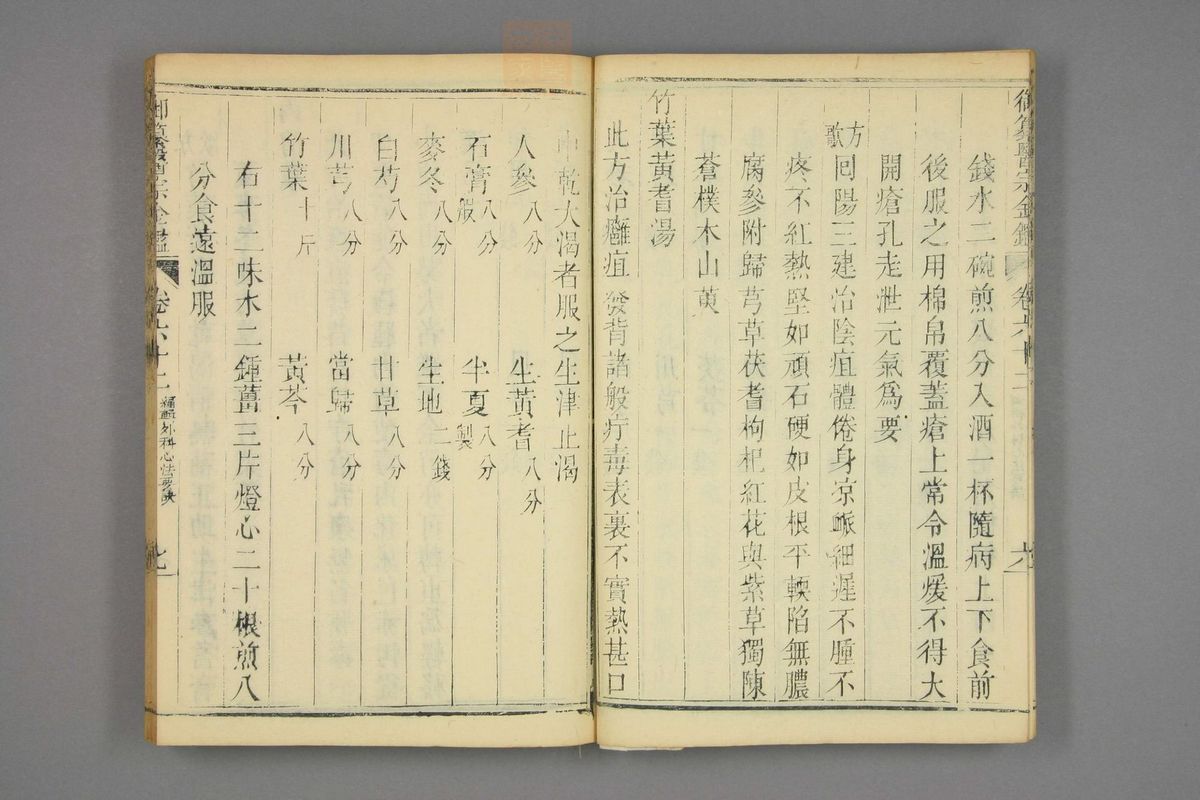 御纂醫宗金鑑 卷六十二
錢水二碗煎八分入酒一杯隨病上下食前
後服之用棉帛覆蓋瘡上常令溫煖不得大
開瘡孔走泄元氣爲要
方歌 回陽三建治陰疽體倦身凉脈細遲不腫不
疼不紅熱堅如頑石硬如皮根平輭陷無膿
腐參附歸芎草茯耆枸杞紅花與紫草獨陳
蒼樸木山萸
竹葉黃耆湯
此方治癰疽發背諸般疔毒表裏不實熱甚口
中乾大渴者服之生津止渴
人參八分 生黃耆八分
石膏煅八分 半夏製八分
麥冬八分 生地二錢
白芍八分 甘草八分
川芎八分 當歸八分
竹葉十斤 黃芩八分
右十二味水二鍾薑三片燈心二十根煎八
分食遠溫服
御纂醫宗金鑑 卷六十二 編輯外科心法要訣 七